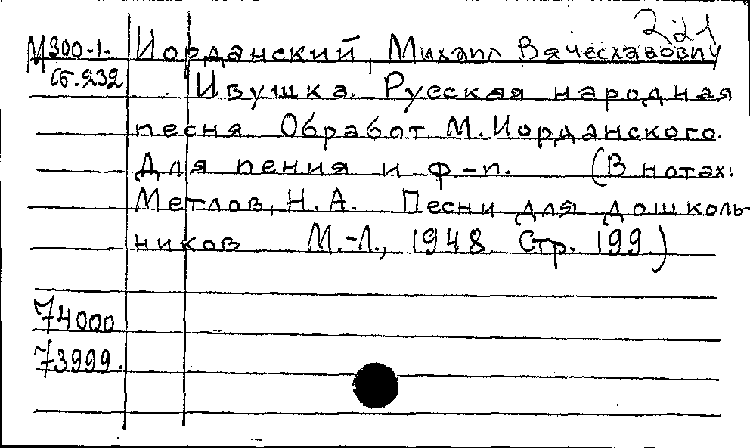 221
М300-1. Иорданский, Михаил Вячеславович
Сб.232 Ивушка. Русская народная
песня Обработ М.Иорданского.
Для пения и ф-п. (В нотах:
Метлов, Н.А. Песни для дошколь-
ников М.-Л., 1948 Стр. 199)
74000
73999.